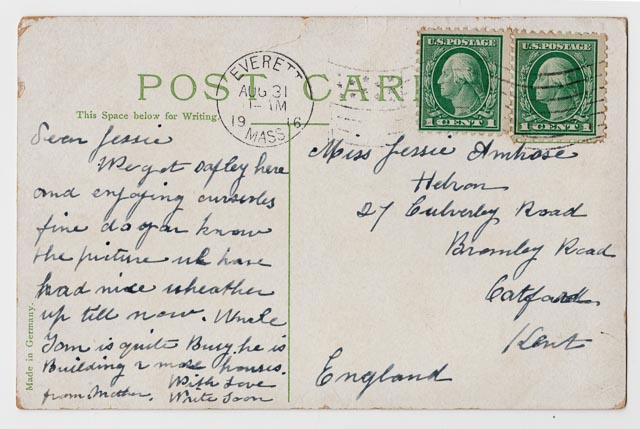 POST CARD
This Space below for Writing.
EVERETT
AUG 31
1- AM
1916
MASS.
U.S. POSTAGE
1 CENT 1
U.S. POSTAGE
1 CENT 1
Dear Jessie
We got safley here
and enjoying ourselves
fine do you know
the picture we have
had nice wheather
up till now. Uncle
Tom is quite Busy. he is
Building 2 more houses.
With Love
from Mother. Write Soon
Miss Jessie Ambrose
Hebron
27 Culverley Road
Bromley Road
Catford
Kent
England
Made in Germany.